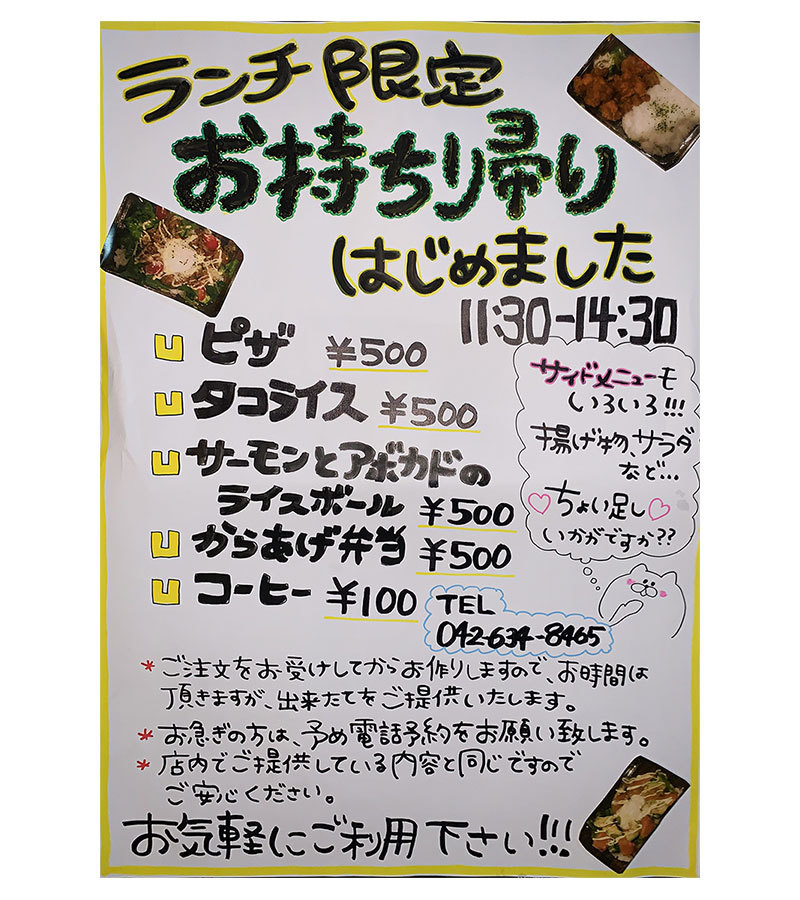 ランチ限定
お持ち帰り
はじめました
11:30-14:30
ピザ ¥500
タコライス ¥500
サーモンとアボカドの
ライスボール ¥500
からあげ弁当 ¥500
コーヒー ¥100
サイドメニューも
いろいろ!!!
揚げ物、サラダ
など...
♡ちょい足し♡
いかがですか??
TEL
042-634-8465
*ご注文をお受けしてからお作りしますので、お時間は
頂きますが、出来たてをご提供いたします。
*お急ぎの方は、予め電話予約をお願い致します。
*店内でご提供している内容と同じですので
ご安心ください。
お気軽にご利用下さい!!!